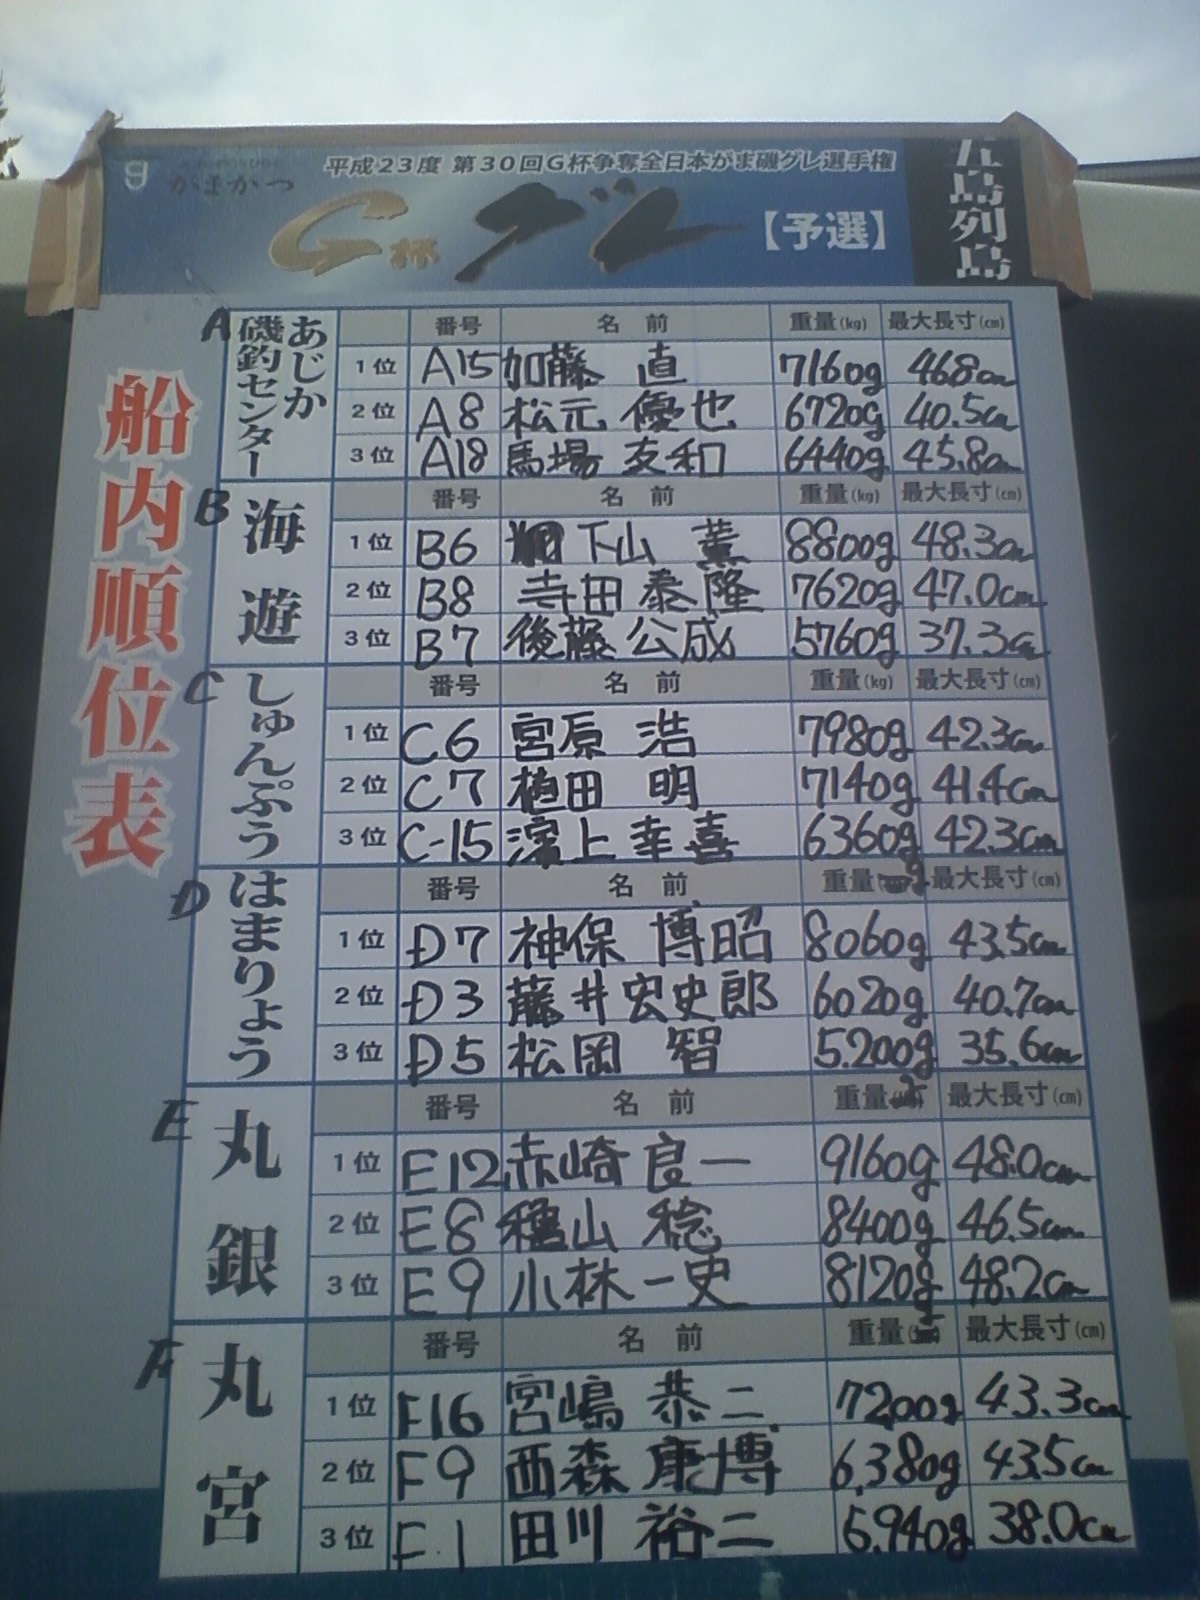 がまかつ
平成23度 第30回G杯争奪全日本がま磯グレ選手権
G杯グレ【予選】
五島列島
船内順位表
A
あじか
磯釣センター
番号 名前 重量(kg) 最大長寸(cm)
1位 A15 加藤 直 7160g 46.8cm
2位 A8 松元 優也 6720g 40.5cm
3位 A18 馬場 友和 6440g 45.8cm
B
海遊
番号 名前 重量(kg) 最大長寸(cm)
1位 B6 下山 薫 8800g 48.3cm
2位 B8 寺田 泰隆 7620g 47.0cm
3位 B7 後藤 公成 5760g 37.3cm
C
しゅんぷう
番号 名前 重量(kg) 最大長寸(cm)
1位 C6 宮原 浩 7980g 42.3cm
2位 C7 植田 明 7140g 41.4cm
3位 C-15 濱上 幸喜 6360g 42.3cm
D
はまりょう
番号 名前 重量 g 最大長寸(cm)
1位 D7 神保 博昭 8060g 43.5cm
2位 D3 藤井 宏史郎 6020g 40.7cm
3位 D5 松岡 智 5.200g 35.6cm
E
丸銀
番号 名前 重量 g 最大長寸(cm)
1位 E12 赤崎 良一 9160g 48.0cm
2位 E8 穐山 稔 8400g 46.5cm
3位 E9 小林 一史 8120g 48.2cm
F
丸宮
番号 名前 重量 最大長寸(cm)
1位 F16 宮嶋 恭二 7200g 43.3cm
2位 F9 西森 康博 6.380g 43.5cm
3位 F.1 田川 裕二 5.940g 38.0cm